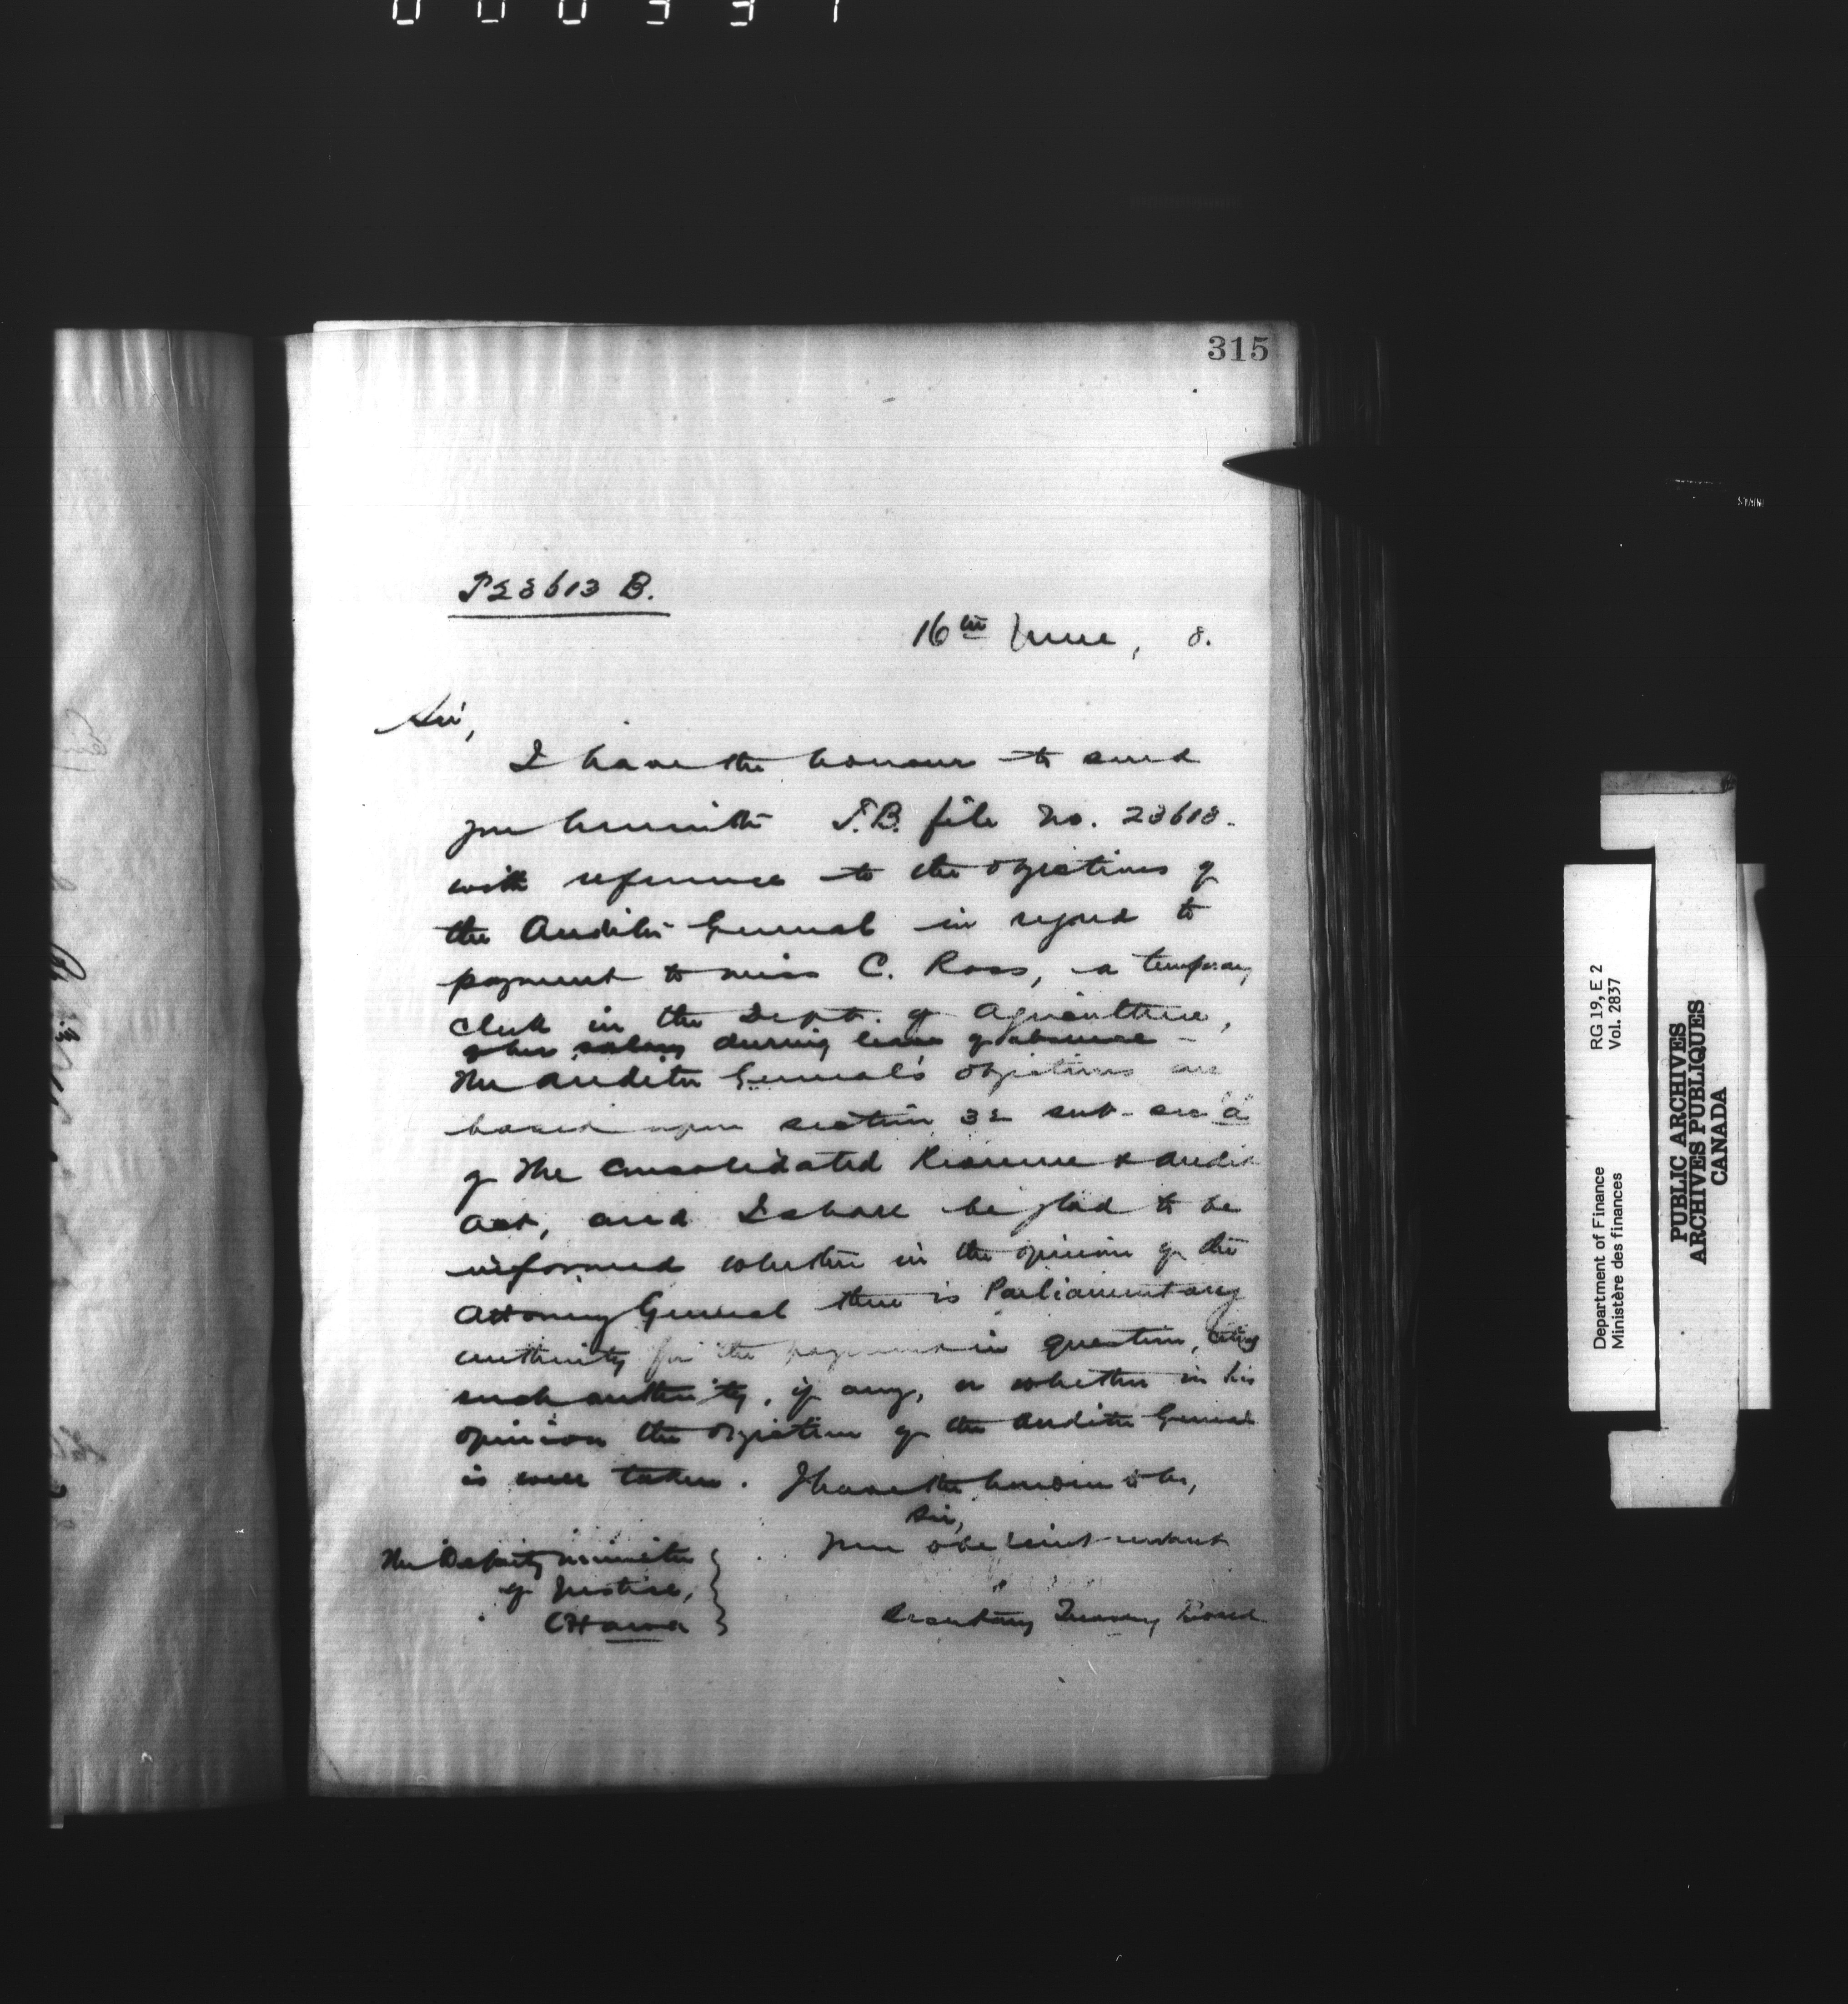 315
T 23613 B.
16th June, 8.
Sir,
I have the honour to send
you herewith T.B. file No. 23613.
with reference to the objections of
the Auditor General in regard to
payment to Miss C. Ross, a temporary
clerk in the Dept. of Agriculture,
of her salary during leave of absence -
The Auditor General's objections are
based upon section 32 sub-sec "a"
of The Consolidated Revenue & Audit
Act, and I shall be glad to be
informed whether in the opinion of the
Attorney General there is Parliamentary
authority for the payment in question, citing
such authority, if any, or whether in his
opinion the objection of the Auditor General
is well taken. I have the honour to be,
Sir,
Your obedient servant
Secretary Treasury Board
The Deputy Minister
of Justice,
Ottawa
Department of Finance RG 19, E 2
Ministère des finances Vol. 2837
PUBLIC ARCHIVES
ARCHIVES PUBLIQUES
CANADA